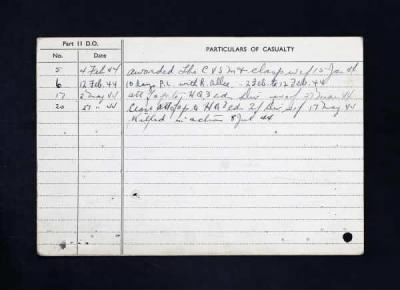 Part 11 D.O.
PARTICULARS OF CASUALTY
No. Date
5 4 Feb 44 awarded the C V S M & clasp w e f 15 Jan 44
6 12 Feb. 44 10 days P.L. with R. Allce. 2 Feb. to 12 Feb. 44
17 2 May 44 att to H.Q. 3 Cdn Div 27 Mar 44
20 27 " 44 Cease att to H Q 3 Cdn Div 17 May 44
Killed in action 8 Jun 44